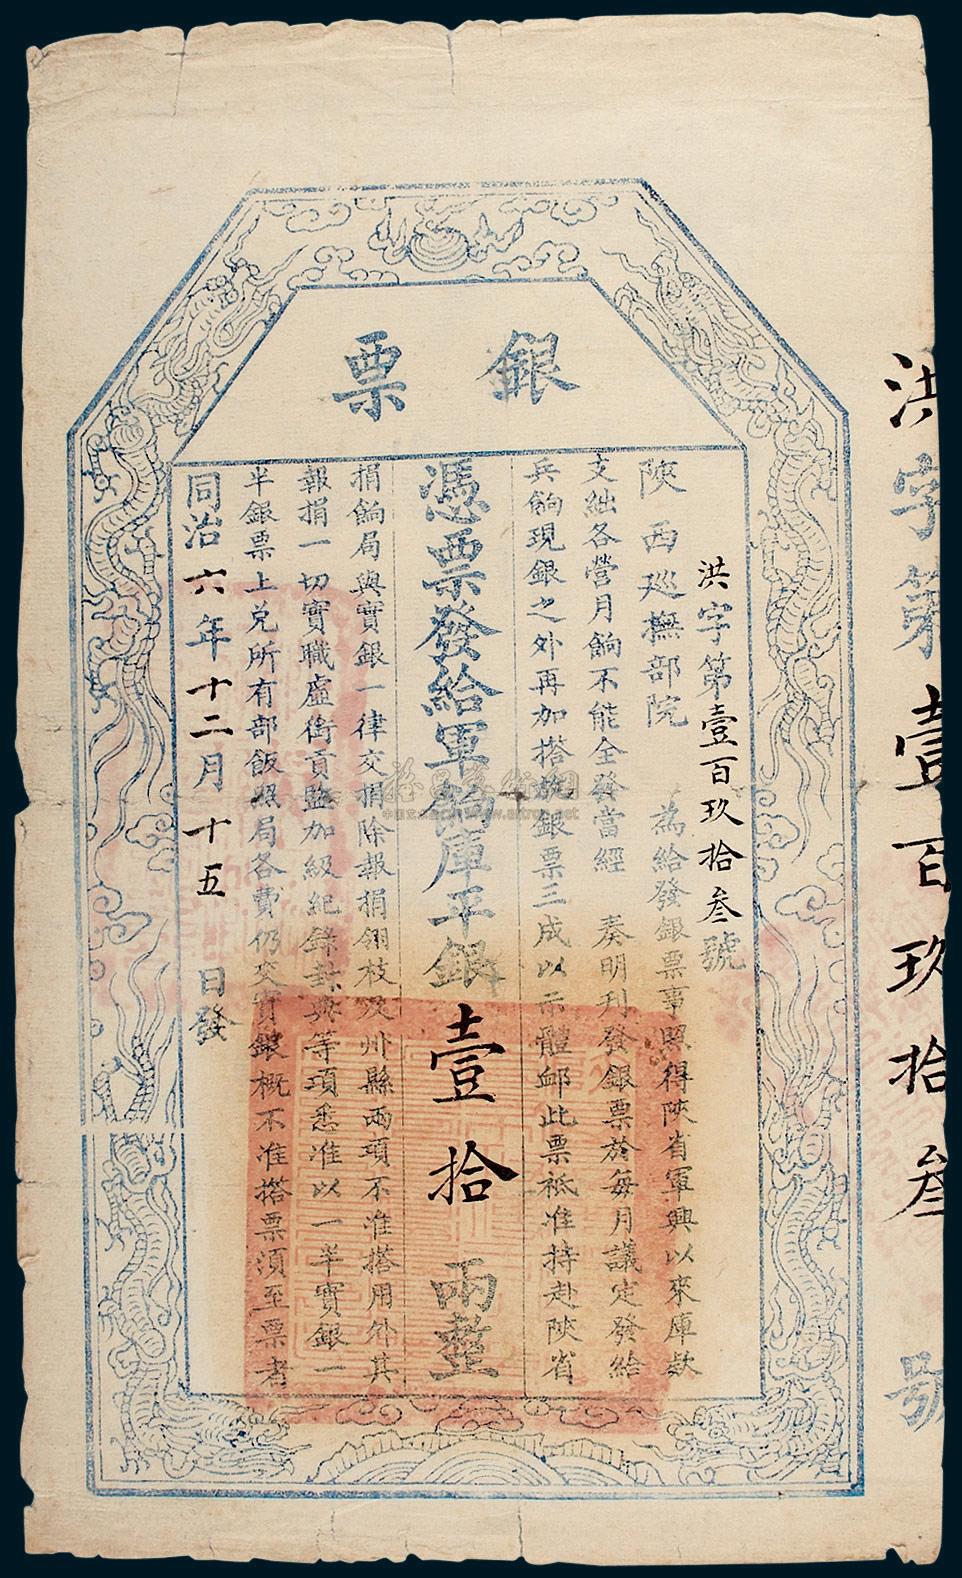 洪字第壹百玖拾叁號
銀票
洪字第壹百玖拾叁號
陝西巡撫部院　為給發銀票事照得陝省軍興以來庫款
支絀各營月餉不能全發當經　奏明刊發銀票於每月議定發給
兵餉現銀之外再加搭放銀票三成以示體邮此票祗准持赴陝省
憑票發給軍餉庫平銀壹拾兩整
捐餉局與實銀一律交捐除報捐翎枝及州縣兩項不准搭用外其
報捐一切實職虛銜貢監加級紀錄封典等項悉准以一半實銀一
半銀票上兌所有部飯照局各費仍交實銀概不准搭票須至票者
同治六年十二月十五日發